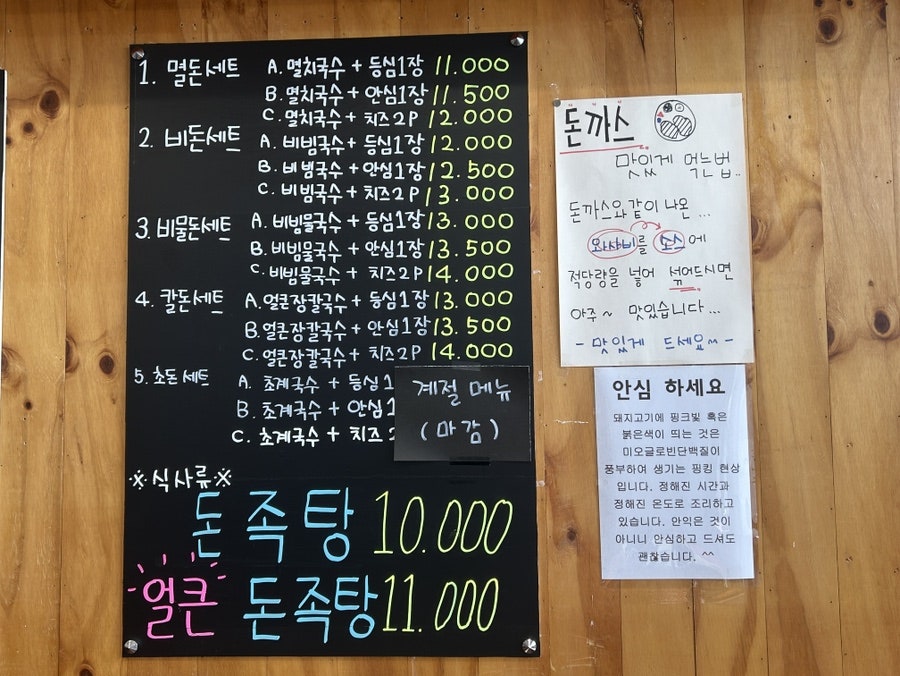 1. 멸돈세트 A. 멸치국수 + 등심1장 11.000
B. 멸치국수 + 안심1장 11.500
C. 멸치국수 + 치즈2P 12.000
2. 비돈세트 A. 비빔국수 + 등심1장 12.000
B. 비빔국수 + 안심1장 12.500
C. 비빔국수 + 치즈2P 13.000
3. 비물돈세트 A. 비빔물국수 + 등심1장 13.000
B. 비빔물국수 + 안심1장 13.500
C. 비빔물국수 + 치즈2P 14.000
4. 칼돈세트 A. 얼큰장칼국수 + 등심1장 13.000
B. 얼큰장칼국수 + 안심1장 13.500
C. 얼큰장칼국수 + 치즈2P 14.000
5. 초돈세트 A. 초계국수 + 등심1
B. 초계국수 + 안심1
C. 초계국수 + 치즈2
계절 메뉴
(마감)
※식사류※
돈족탕 10.000
얼큰 돈족탕 11.000
돈까스
맛있게 먹는법..
돈까스와같이 나온...
와사비를 소스에
적당량을 넣어 섞어드시면
아주~ 맛있습니다...
- 맛있게 드세요~ -
안심 하세요
돼지고기에 핑크빛 혹은
붉은색이 띄는 것은
미오글로빈단백질이
풍부하여 생기는 핑킹 현상
입니다. 정해진 시간과
정해진 온도로 조리하고
있습니다. 안익은 것이
아니니 안심하고 드셔도
괜찮습니다. ^^